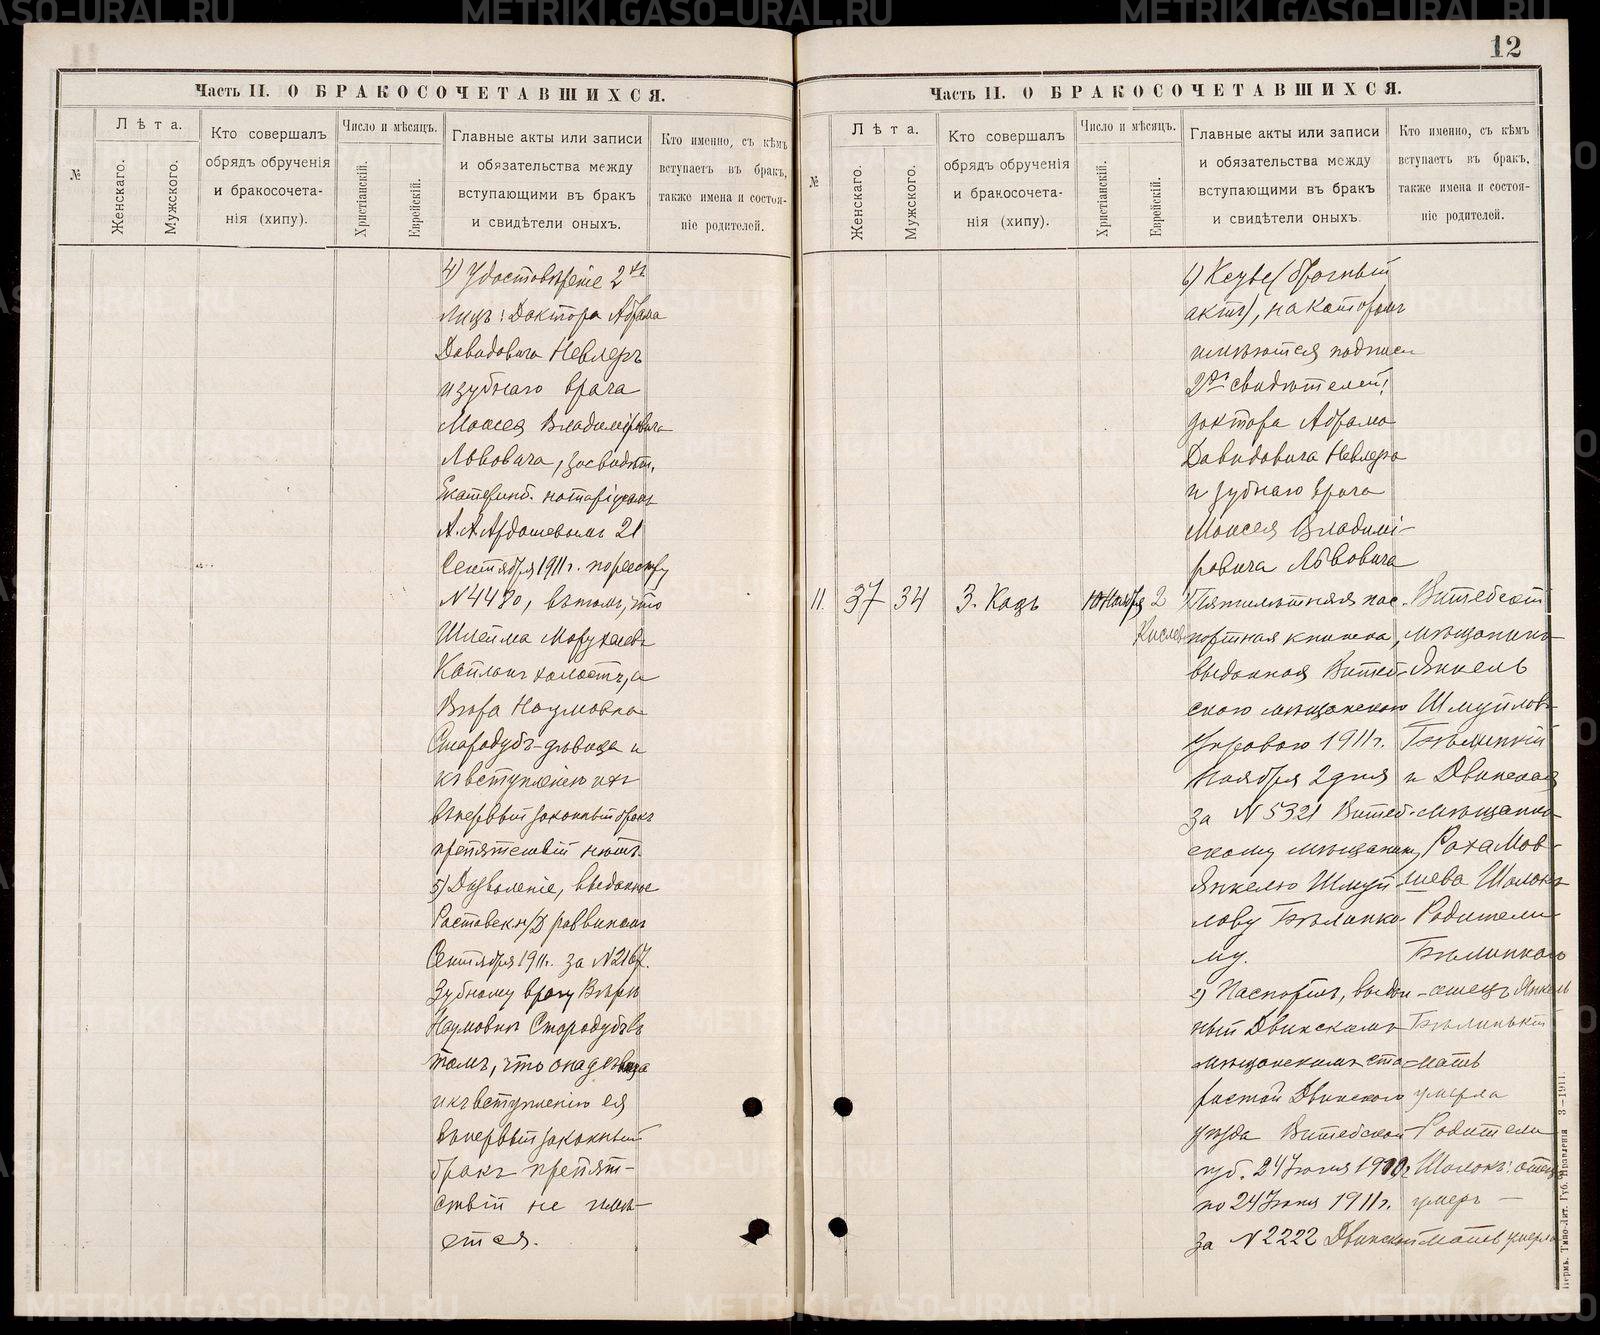 METRIKI.GASO-URAL.RU
12
Часть II. О БРАКОСОЧЕТАВШИХСЯ.
№
Лѣта.
Женскаго.
Мужскаго.
Кто совершалъ
обрядъ обрученія
и бракосочета-
нія (хипу).
Число и мѣсяцъ.
Христіанскій.
Еврейскій.
Главные акты или записи
и обязательства между
вступающими въ бракъ
и свидѣтели оныхъ.
Кто именно, съ кѣмъ
вступаетъ въ бракъ,
также имена и состоя-
ніе родителей.
4) Удостовѣреніе 2хъ
лицъ: Доктора Абрама
Давидовича Невлеръ
и зубнаго врача
Моисея Владиміровича
Львовича, засвидѣт.
Екатеринб. нотаріусомъ
А.А. Ардашевымъ 21
Сентября 1911 г. по реестру
№ 4480, въ томъ, что
Шлейма
Капланъ холостъ, а
Вѣра Наумовна
Стародубъ - дѣвица и
къ вступленію ихъ
въ первый законный бракъ
препятствій нѣтъ.
5) Дозволеніе, выданное
Ростовск н/Д раввиномъ
Сентября 1911 г. за № 2167.
Зубному врачу Вѣрѣ
Наумовнѣ Стародубъ въ
томъ, что она дѣвица
и къ вступленію ея
въ первый законный
бракъ препят-
ствій не имѣ-
ется.
Часть II. О БРАКОСОЧЕТАВШИХСЯ.
№
Лѣта.
Женскаго.
Мужского.
Кто совершалъ
обрядъ обрученія
и бракосочета-
нія (хипу).
Число и мѣсяцъ.
Христіанскій.
Еврейскій.
Главные акты или записи
и обязательства между
вступающими въ бракъ
и свидѣтели оныхъ.
Кто именно, съ кѣмъ
вступаетъ въ бракъ,
также имена и состоя-
ніе родителей.
6) Кеуве (брачный
актъ), на которомъ
имѣются подписи
2хъ свидѣтелей:
доктора Абрама
Давидовича Невлера
и зубнаго врача
Моисея Владимі-
ровича Львовича
11. 37 34 З. Кацъ 10 Ноября 2
Кислев
1) Пятилѣтняя пас-
портная книжка,
выданная Витеб-
скою мѣщанскою
Управою 1911 г.
Ноября 2 дня
за № 5321 Витеб-
скому мѣщанину
Янкелю Шмуй-
лову Бѣлицко-
му.
2) Паспортъ, выдан-
ный Двинскимъ
мѣщанскимъ ста-
ростой Двинского
уѣзда Витебской
губ. 24 Іюня 1910 г.
по 24 Іюня 1911 г.
за № 2222 Двинской
Витебскій
мѣщанинъ
Янкель
Шмуйловъ
Бѣлицкій
и Двинская
мѣщанка
Раха Мов-
шева Шолокъ
Родители
Бѣлицкого
отецъ Янкель
Бѣлицкій
мать
умерла
Родители
Шолокъ: отецъ
умеръ —
мать умерла
Пермь. Типо-Лит. Губ. Правленія 3—1911.